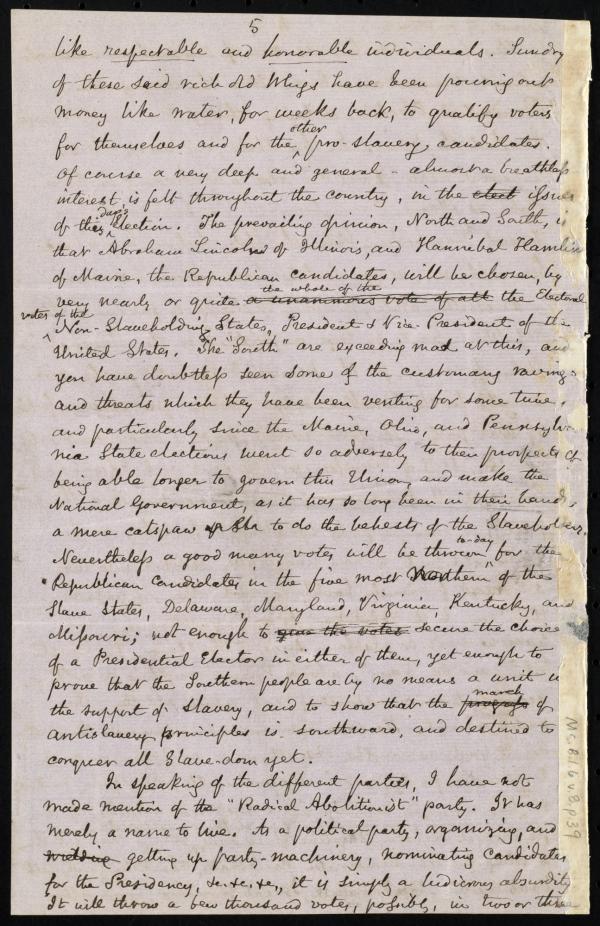 5
like respectable and honorable individuals. Sundry
of these said rich old Whigs have been pouring out
money like water, for weeks back, to qualify voters
for themselves and for the other pro-slavery candidates.
Of course a very deep and general - almost a breathless
interest, is felt throughout the country, in the elect issues
of this day's Election. The prevailing opinion, North and South, is
that Abraham Lincoln of Illinois, and Hannibal Hamlin
of Maine, the Republican candidates, will be chosen, by
very nearly or quite a unanimous vote of all the whole of the the Electoral
votes of the Non-Slaveholding States, President & Vice-President of the
United States. The "South" are exceeding mad at this, and
you have doubtless seen some of the customary ravings
and threats which they have been venting for some time,
and particularly since the Maine, Ohio, and Pennsylva-
nia State elections went so adversely to their prospects of
being able longer to govern this Union, and make the
National Government, as it has so long been in their hands,
a mere catspaw to do the behests of the Slaveholders.
Nevertheless a good many votes will be thrown to-day for the
Republican candidates in the five most "Northern" of the
Slave States, Delaware, Maryland, Virginia, Kentucky, and
Missouri; not enough to give the votes secure the choice
of a Presidential Elector in either of them, yet enough to
prove that the Southern people are by no means a unit in
the support of Slavery, and to show that the progress march of
antislavery principles is southward, and destined to
conquer all Slave-dom yet.
In speaking of the different parties, I have not
made mention of the "Radical Abolitionist" party. It has
merely a name to live. As a political party, organizing, and
getting up party-machinery, nominating candidates
for the Presidency, &c. &c. &c., it is simply a ludicrous absurdity.
It will throw a few thousand votes, possibly, in two or three
Ms.B.1.6 v.8, p.39